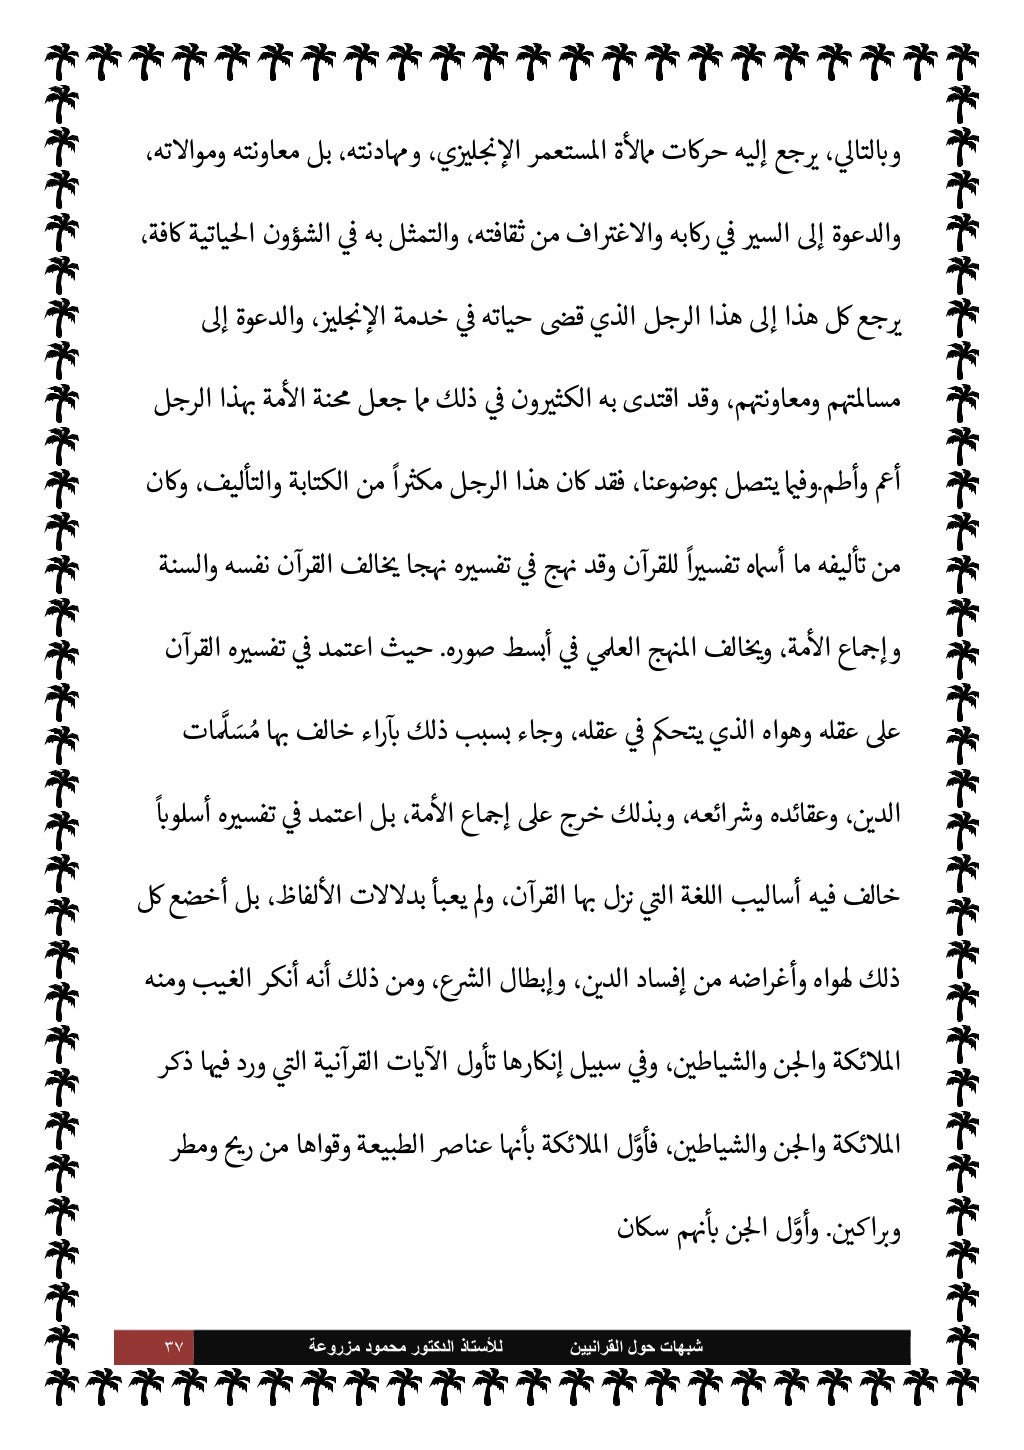 وبالتالي، يرجع إليه حركات ممالأة المستعمر الإنجليزي، ومهادنته، بل معاونته وموالاته،
والدعوة إلى السير في ركابه والاغتراف من ثقافته، والتمثل به في الشؤون الحياتية كافة،
يرجع كل هذا إلى هذا الرجل الذي قضى حياته في خدمة الإنجليز، والدعوة إلى
مسالمتهم ومعاونتهم، وقد اقتدى به الكثيرون في ذلك مما جعل محنة الأمة بهذا الرجل
أعم وأطم.وفيما يتصل بموضوعنا، فقد كان هذا الرجل مكثراً من الكتابة والتأليف، وكان
من تأليفه ما أسماه تفسيراً للقرآن وقد نهج في تفسيره نهجا يخالف القرآن نفسه والسنة
وإجماع الأمة، ويخالف المنهج العلمي في أبسط صوره. حيث اعتمد في تفسيره القرآن
على عقله وهواه الذي يتحكم في عقله، وجاء بسبب ذلك بآراء خالف بها مُسَلَّمات
الدين، وعقائده وشرائعه، وبذلك خرج على إجماع الأمة، بل اعتمد في تفسيره أسلوباً
خالف فيه أساليب اللغة التي نزل بها القرآن، ولم يعبأ بدلالات الألفاظ، بل أخضع كل
ذلك لهواه وأغراضه من إفساد الدين، وإبطال الشرع، ومن ذلك أنه أنكر الغيب ومنه
الملائكة والجن والشياطين، وفي سبيل إنكارها تأول الآيات القرآنية التي ورد فيها ذكر
الملائكة والجن والشياطين، فأوَّل الملائكة بأنها عناصر الطبيعة وقواها من ريح ومطر
وبراكين. وأوَّل الجن بأنهم سكان
شبهات حول القرانيين للأستاذ الدكتور محمود مزروعة ٣٧